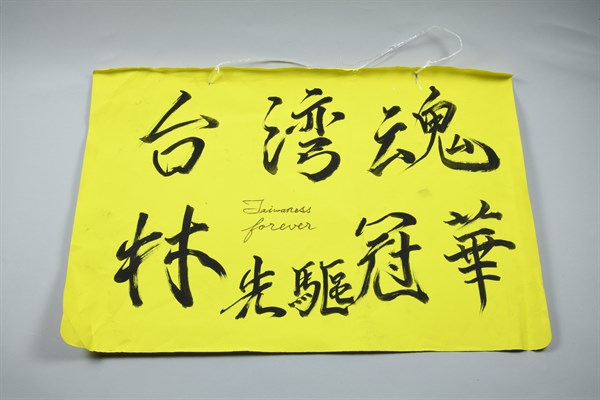 台湾魂
Taiwaness
forever
林先驅冠華